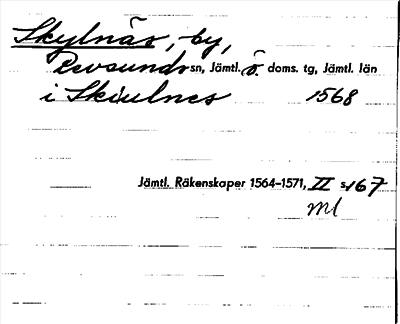 Skylnäs, by,
Revsunds sn, Jämtl. ö. doms. tg, Jämtl. län
i Skiulnes 1568
Jämtl. Räkenskaper 1564-1571, II s. 167
Ml